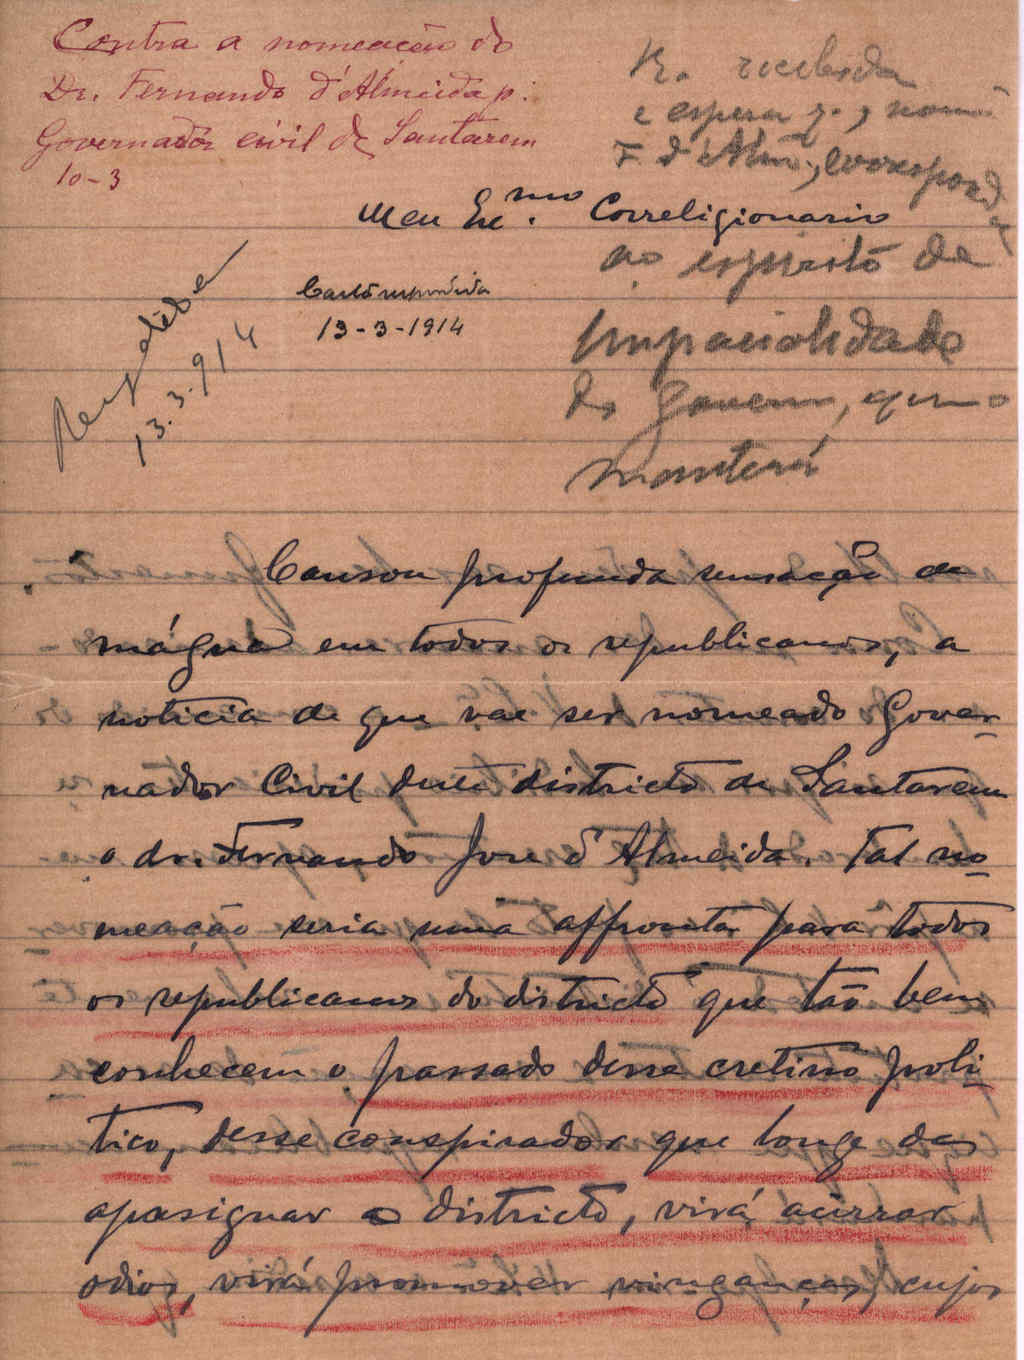 Contra a nomeação do
Dr. Fernando d'Almeida p.
Governador civil de Santarem
10-3
R. recebida
e espera q. , nomº
F. d'Almª, corresponda
ao espirito de
imparcialidade
do Governo, que o
manterá
Meu Exmo. Correligionario
Carta respondida
13-3-1914
Respdida
13.3.914
Causou profunda sensação de
mágua em todos os republicanos, a
noticia de que vae ser nomeado Gover-
nador Civil deste districto de Santarem
o dr. Fernando José d'Almeida. Tal no-
meação seria uma affronta para todos
os republicanos do districto que tão bem
conhecem o passado desse cretino poli-
tico, desse conspirador que longe de
apasiguar o districto, virá acirrar
odios, virá promover vinganças, cujos